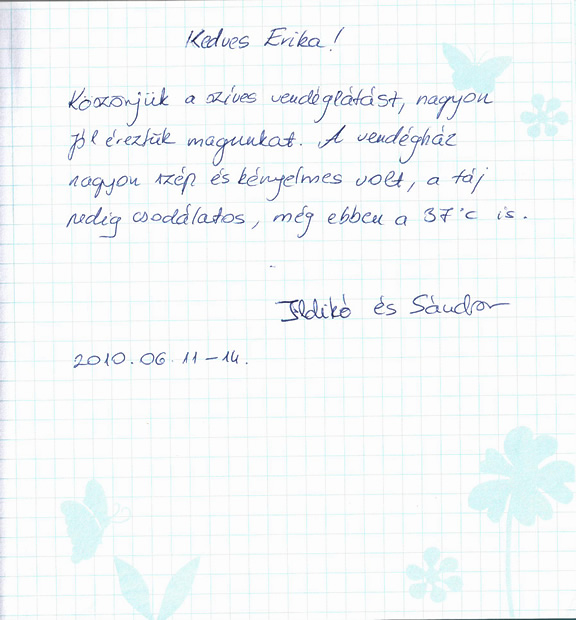 Kedves Erika!
Köszönjük a szíves vendéglátást, nagyon
jól éreztük magunkat. A vendégház
nagyon szép és kényelmes volt, a táj
pedig csodálatos, még ebben a 37°C is.
Ildikó és Sándor
2010.06.11-14.